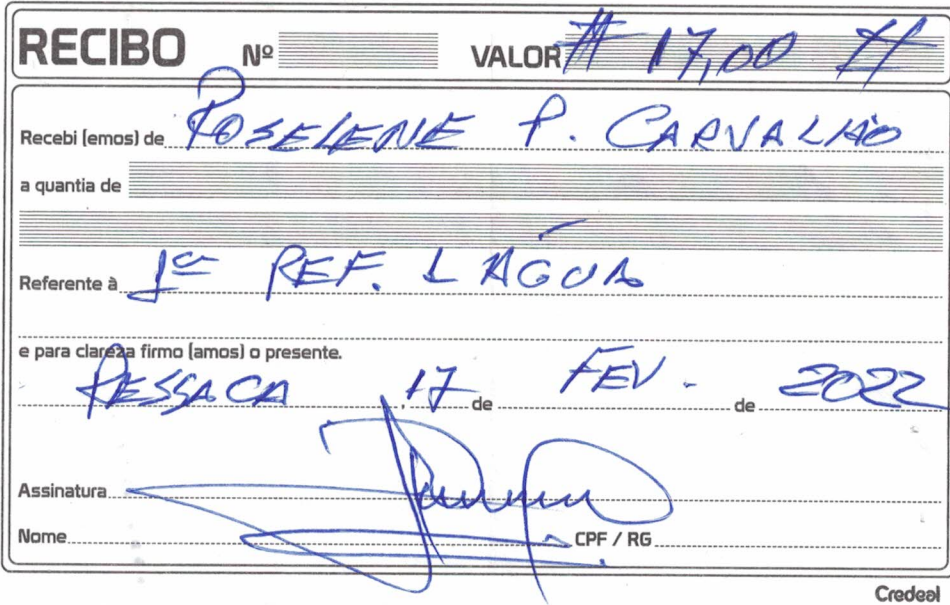 RECIBO Nº VALOR # 17,00 #
Recebi (emos) de ROSELENE P. CARVALHO
a quantia de
Referente à 1ª REF. 1 ÁGUA
e para clareza firmo (amos) o presente.
RESSACA, 17 de FEV. de 2022
Assinatura
Nome CPF / RG
Credeal